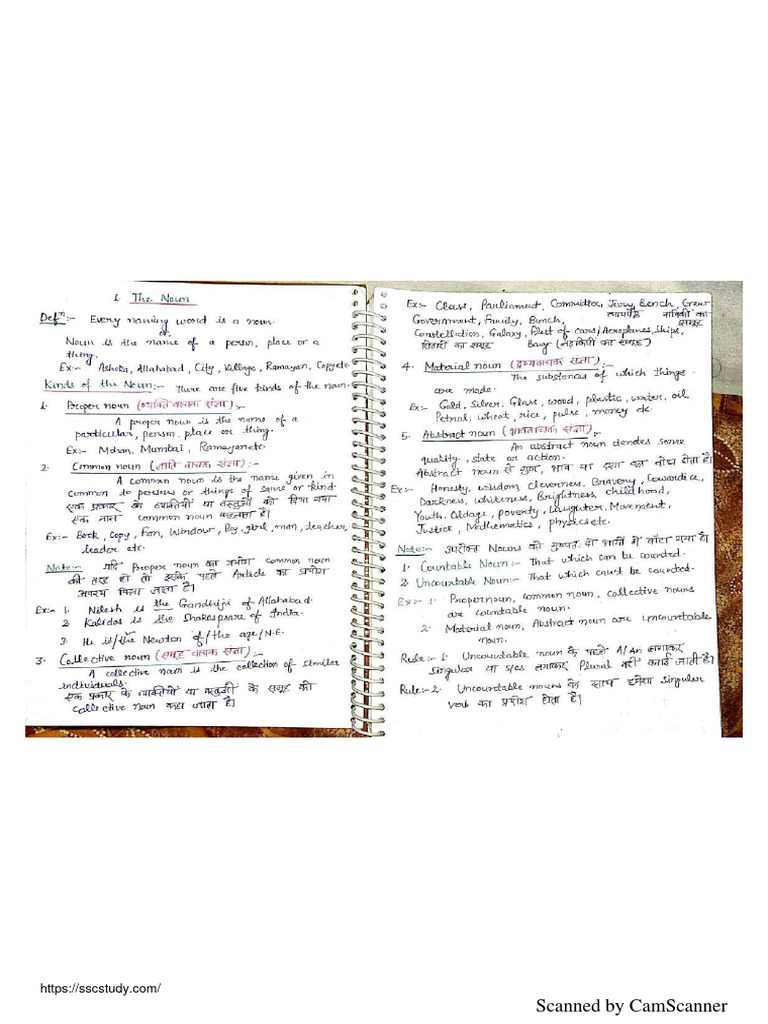 1. The Noun
Defⁿ:- Every naming word is a noun.
or
Noun is the name of a person, place or a
thing.
Ex:- Ashoka, Allahabad, City, Village, Ramayan, Copy etc
Kinds of the Noun:- There are five kinds of the noun.
1. Proper noun (व्यक्ति वाचक संज्ञा):-
A proper noun is the name of a
particular, person, place or thing.
Ex:- Mohan, Mumbai, Ramayan etc.
2. Common noun (जाति वाचक संज्ञा):-
A common noun is the name given in
common to persons or things of same or kind.
एक प्रकार के व्यक्तियों या वस्तुओं को दिया गया
एक नाम common noun कहलाता है।
Ex:- Book, Copy, Fan, Window, Boy, girl, man, teacher,
leader etc.
Note:- यदि Proper noun का प्रयोग common noun
की तरह हो तो इसके पहले Article का प्रयोग
अवश्य किया जाता है।
Ex:- 1. Nilesh is the Gandhiji of Allahabad.
2 Kalidas is the Shakespeare of India.
3. He is/the Newton of/the age/N.E.
3. Collective noun (समूह वाचक संज्ञा):-
A collective noun is the collection of similar
individuals.
एक प्रकार के व्यक्तियों या वस्तुओं के समूह को
Collective noun कहा जाता है।
Ex:- Class, Parliament, Committee, Jury, Bench, Crew
न्यायपीठ नाविकों का समूह
Government, Family, Bench,
Constellation, Galaxy, Fleet of cars/Aeroplanes, Ships,
सितारों का समूह Bevy (लड़कियों का समूह)
4. Material noun (द्रव्यवाचक संज्ञा):-
The substances of which things
are made.
Ex:- Gold, Silver, Glass, wood, plastic, water, oil,
Petrol, wheat, rice, pulse, money etc.
5. Abstract noun (भाववाचक संज्ञा):-
An abstract noun some
quality, state or action.
Abstract noun से गुण, भाव या दशा का बोध होता है।
Ex:- Honesty, wisdom Cleverness, Bravery, Cowardice,
Darkness, whiteness, Brightness, childhood,
Youth, Oldage, poverty, Laughter, Movement,
Justice, Mathematics, physics etc.
Note:- उपरोक्त Nouns को मुख्यतः दो भागों में बाँटा गया है।
1. Countable Noun:- That which can be counted.
2. Uncountable Noun:- That which can't be counted.
Ex:- 1. Proper noun, common noun, collective nouns
are countable noun.
2. Material noun, Abstract noun are uncountable
noun.
Rule:- 1. Uncountable noun के पहले A/An लगाकर
singular या s/es लगाकर Plural नहीं बनाई जाती है।
Rule:- 2. Uncountable nouns के साथ हमेशा singular
verb का प्रयोग होता है।
https://sscstudy.com/
Scanned by CamScanner